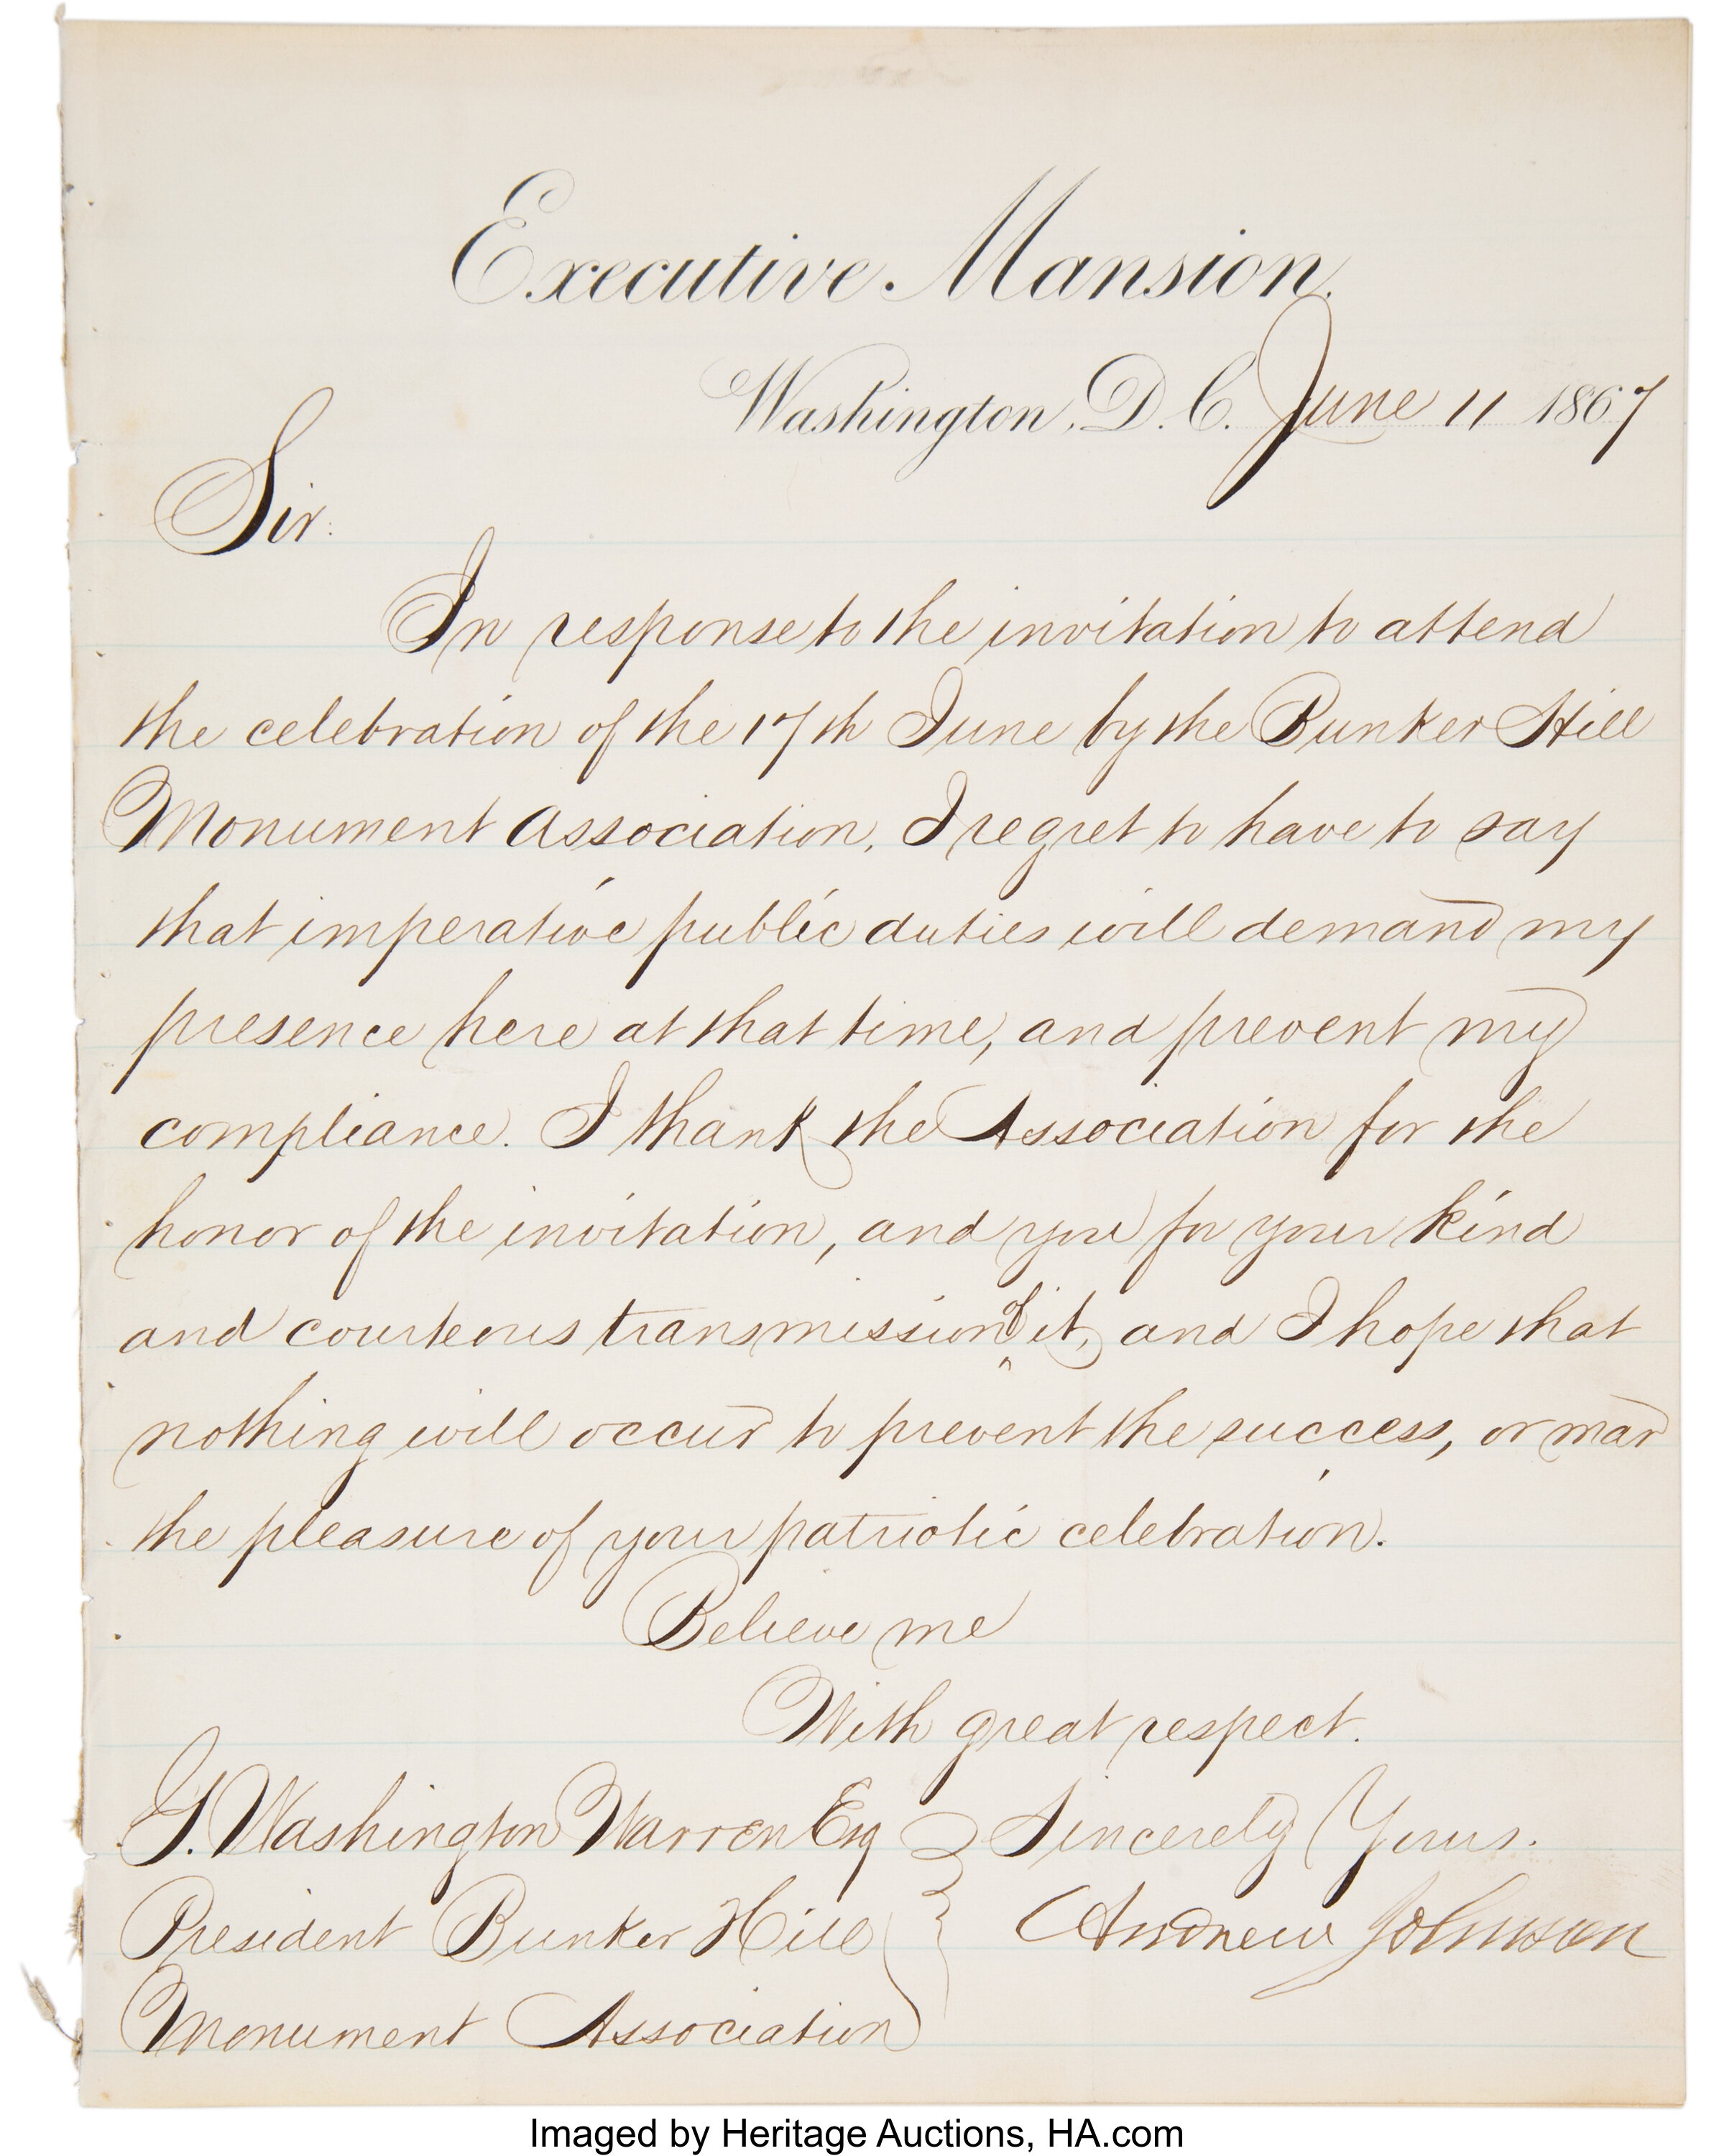 Executive Mansion.
Washington, D. C. June 11 1867
Sir:
In response to the invitation to attend
the celebration of the 17th June by the Bunker Hill
Monument Association, I regret to have to say
that imperative public duties will demand my
presence here at that time, and prevent my
compliance. I thank the Association for the
honor of the invitation, and you for your kind
and courteous transmission of it, and I hope that
nothing will occur to prevent the success, or mar
the pleasure of your patriotic celebration.
Believe me
With great respect.
Sincerely Yours.
Andrew Johnson
G. Washington Warren Esq
President Bunker Hill
Monument Association
Imaged by Heritage Auctions, HA.com